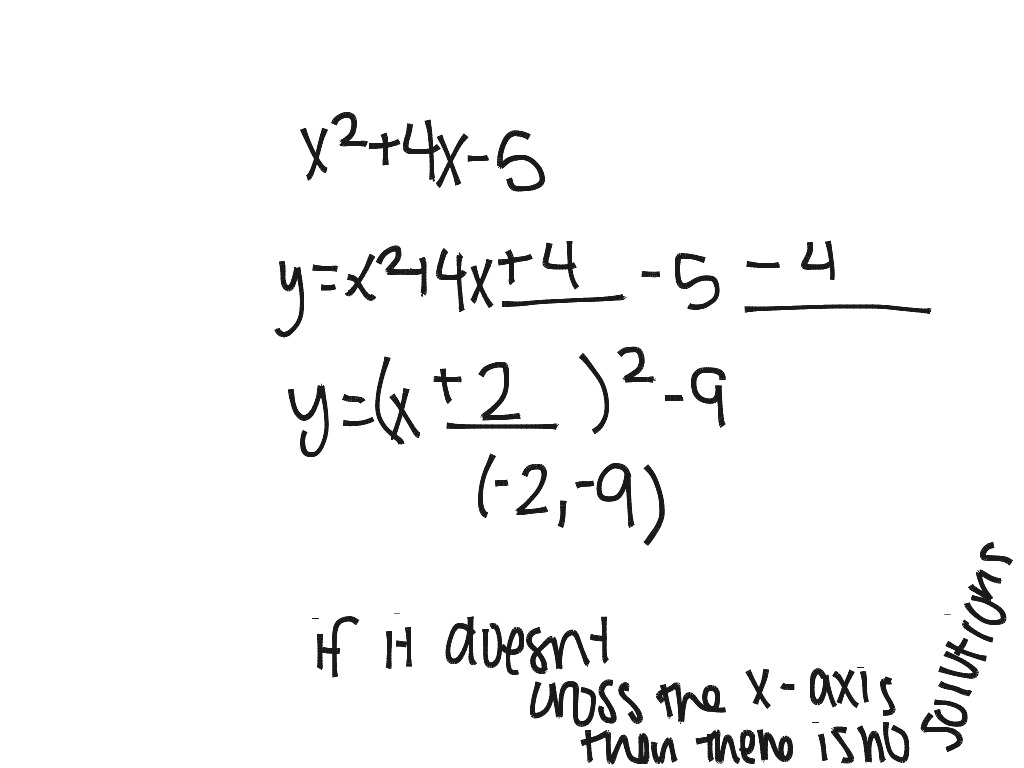 x²+4x-5
y=x²+4x+4 -5 -4
y=(x+2)²-9
(-2,-9)
if it doesnt
cross the x-axis
then there is no
solutions